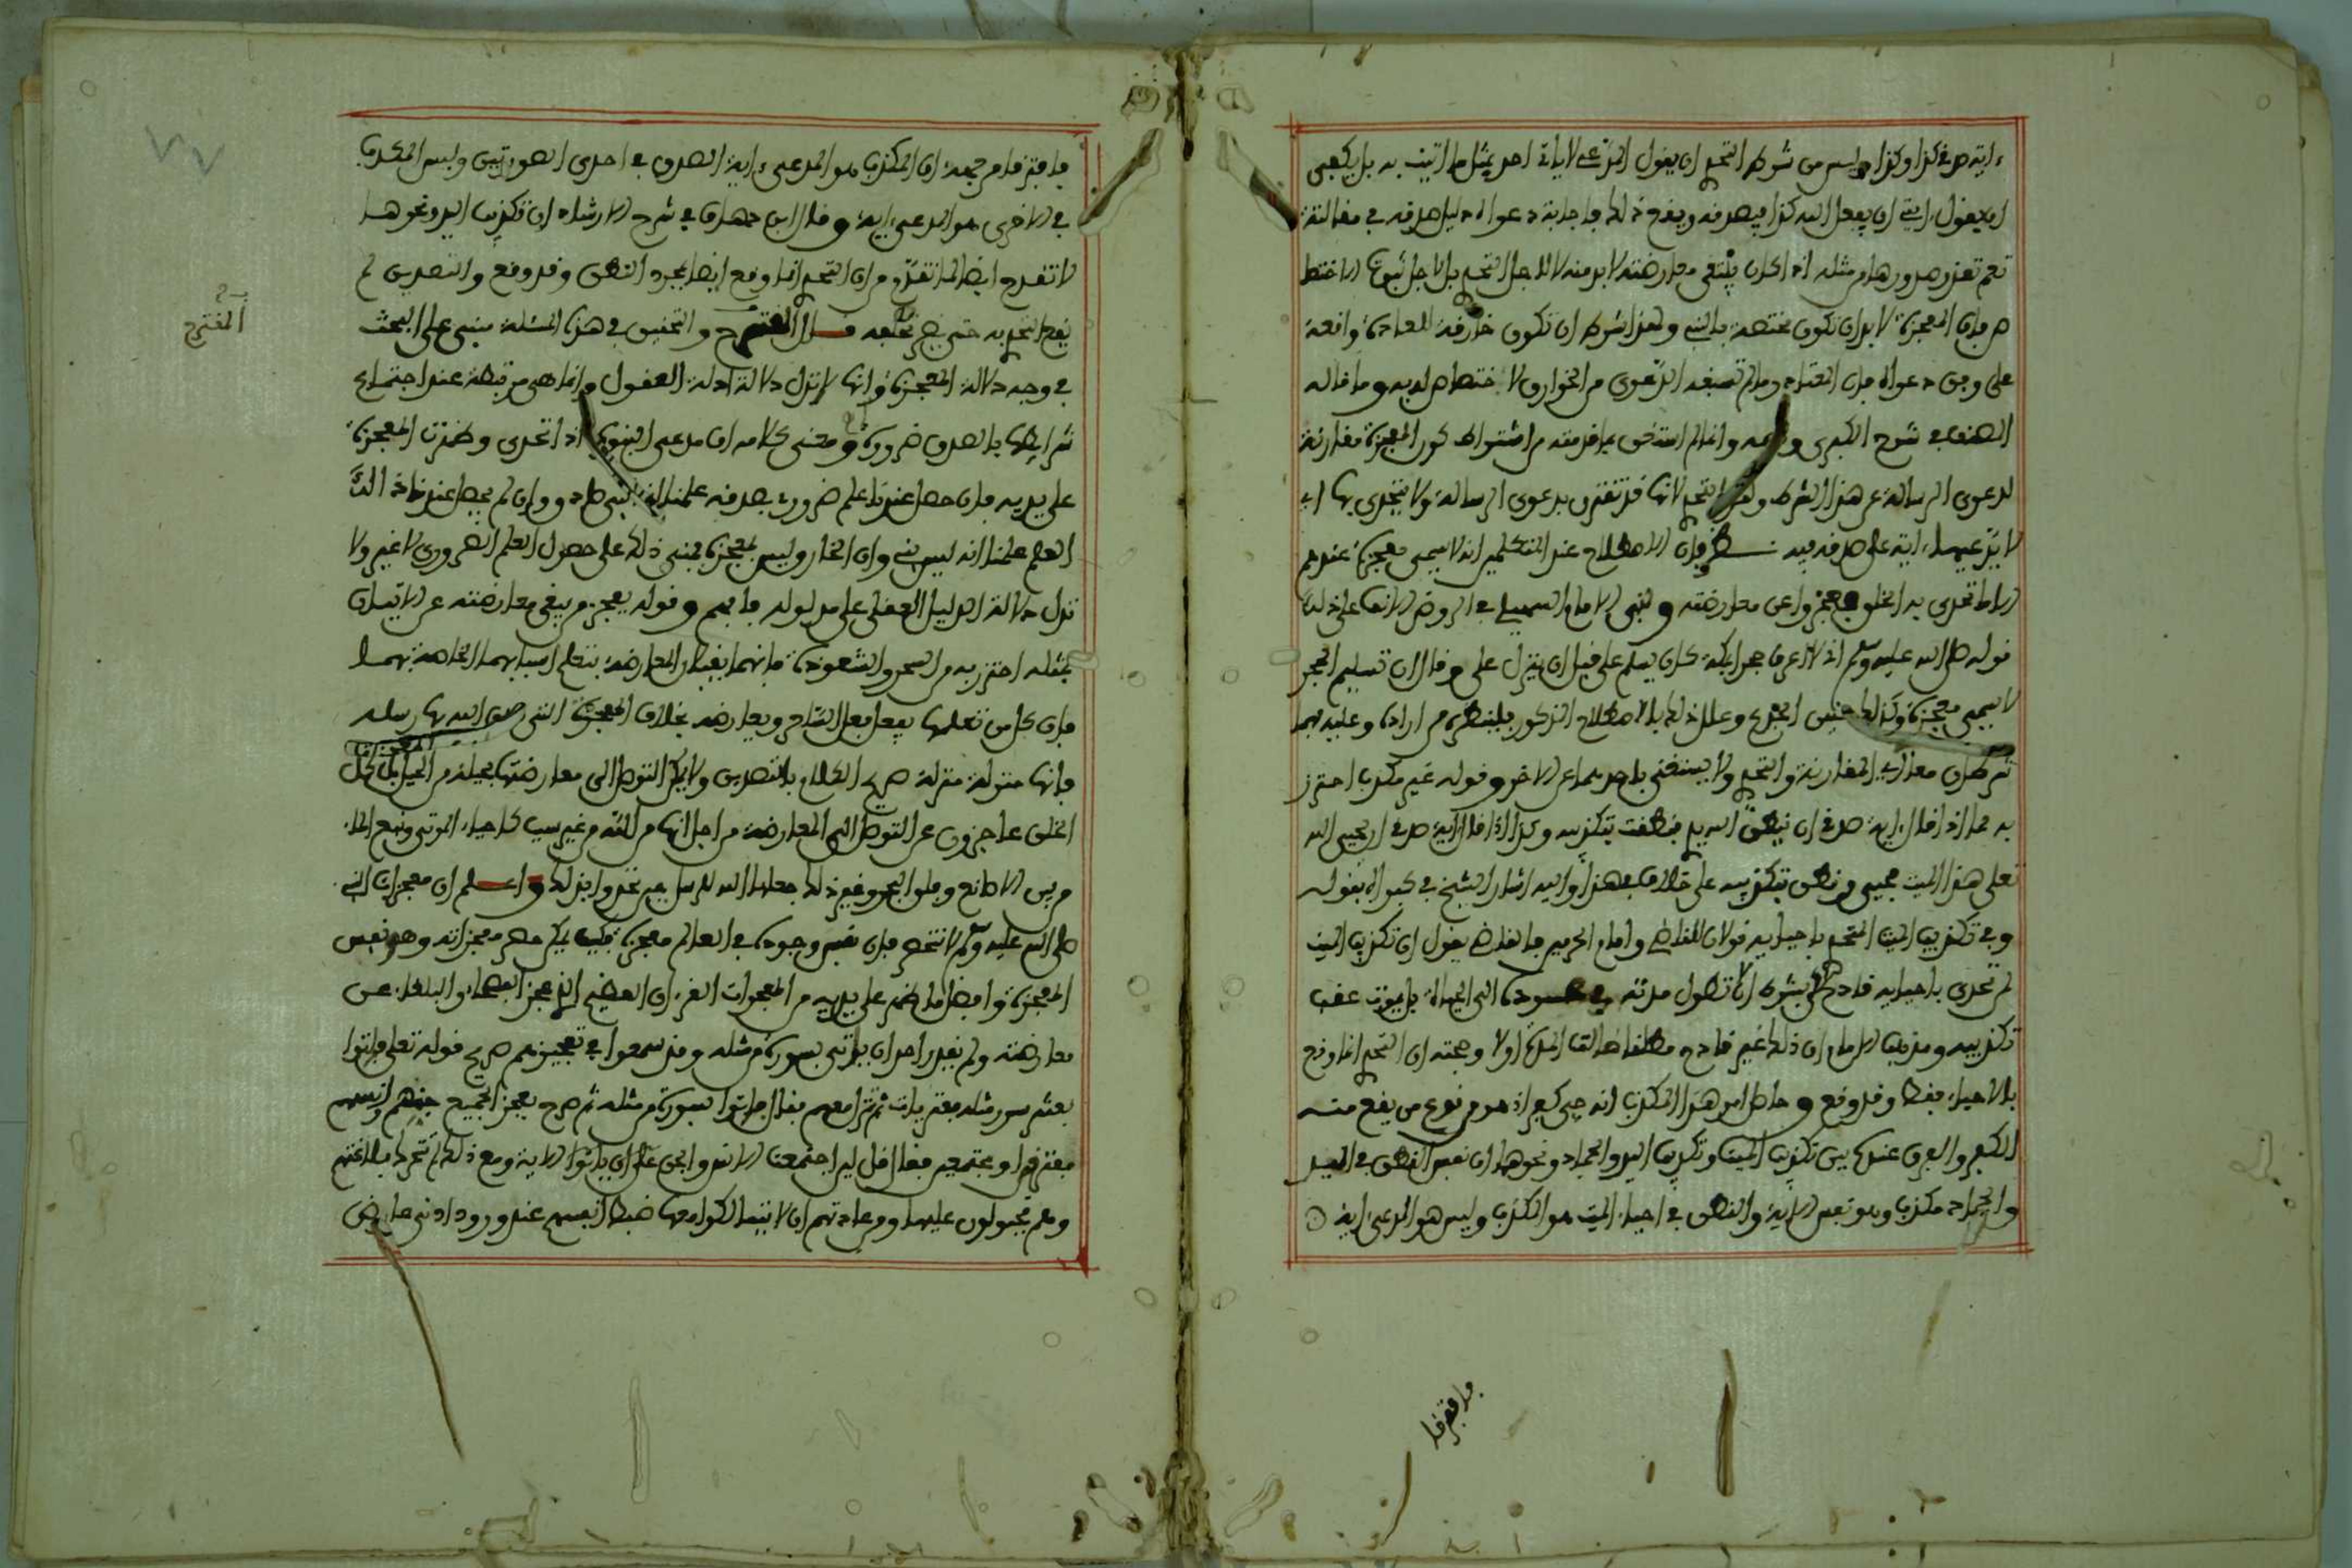 ءاية صدقي كذا وكذا وليس من شرط التحدي ان يقول المدعي لا ياتي احد بمثل ما اتيت به بل يكفي
ان يقول ءايتي ان يفعل الله كذا فيصدقه ويقع ذلك فاجابة دعواه دليل صدقه في مقالته
نعم تعذر صدورها من مثله اذا كان يبتغي معارضته لا بد منه لا لاجل التحدي بل لاجل ثبوت الاختصا
ص فان المعجزة لا بد ان تكون مختصة بالنبي ولهذا شرط ان تكون خارقة للعادة واقعة
على وفق دعواه فان المعتاد وما لم تصبغه الدعوى من الخوارق لا اختصاص له به وما قاله
المصنف في شرح الكبرى وانما لم استغن بما قدمته من اشتراط كون المعجزة مقارنة
لدعوى الرسالة عن هذا الشرط وهو التحدي لانها قد تقترن بدعوى الرسالة ولا يتحدى بها اي
لا يدعيها ءاية على صدقه فيه نظر فان الاصطلاح عند المتكلمين انه لا يسمى معجزة عندهم
الا ما تحدى به الخلق فعجزوا عن معارضته ونبه الامام السهيلي في الروض الانف على ذلك
قوله صلى الله عليه وسلم اني لاعرف حجرا بمكة كان يسلم علي قبل ان ينزل علي وقال ان تسليم الحجر
لا يسمى معجزة وكذلك حنين الجذع وعلل ذلك بالاصطلاح المذكور فلينظره من اراده وعليه فهما
شرطان معا اي المقارنة والتحدي ولا يستغنى باحدهما عن الاخر وقوله غير مكذب احترز
به مما اذا قال ءاية صدقي ان ينطق الله يدي فنطقت بتكذيبه وكذا اذا قال ءاية صدقي ان يحيي الله
تعلى هذا الميت فحيي ونطق بتكذيبه على خلاف في هذا واليه اشار الشيخ في كبراه بقوله
وفي تكذيب الميت المتحدى باحيايه قولان للقاضي وامام الحرمين فالقاضي يقول ان تكذيب الميت
لم تحدى باحيايه قادح لكن بشرط ان لا تطول مدته في عوده الى الحياة بل يموت عقب
تكذيبه ومذهب الامام ان ذلك غير قادح مطلقا طالت المدة اولا وحجته ان التحدي انما وقع
بالاحياء فقط وقد وقع وحاصل امر هذا المكذب انه حي كفر اذ هو من نوع من يقع منه
الكفر والفرق عنده بين تكذيب الميت وتكذيب اليد والجماد ونحوهما ان نفس النطق في اليد
والجماد مكذب وهو نفس الاية والنطق في احياء الميت هو المكذب وليس هو المدعى ءاية
فافترقا
فافترقا من جهة ان المكذب هو المدعى ءاية الصدق في احدى الصورتين وليس المكذب
في الاخرى هو المدعى ءاية وقال ابن دهاق في شرح الارشاد ان تكذيب اليد ونحوها
لا تقدح ايضا لما تقدم من ان التحدي انما وقع ايضا بمجرد النطق وقد وقع والتصديق لم
يقع التحدي به حتى يضر تخلفه قال المقترح والتحقيق في هذه المسئلة مبني على البحث
المقترح
في وجه دلالة المعجزة وانها لا تدل دلالة ادلة العقول وانما هي مرتبطة عند اجتماع
شرايطها بالصدق ضرورة ومعنى كلامه ان مدعي النبوة اذا تحدى وظهرت المعجزة
على يديه فان حصل عندنا علم ضروري بصدقه علمنا انه نبي صادق وان لم يحصل عند ذلك
العلم علمنا انه ليس بنبي وان الخارق ليس بمعجزة فمبنى ذلك على حصول العلم الضروري لا غير ولا
تدل دلالة الدليل العقلي على مدلوله فافهم وقوله يعجز من يبغي معارضته عن الاتيان
بمثله احترز به من السحر والشعوذة فانهما يقبلان المعارضة بتعلم اسبابهما الخاصة بهما
فان كل من تعلمها يفعل فعل الساحر ويعارضه بخلاف المعجزة التي صدق الله بها رسله
فانها منزلة منزلة صريح الكلام بالتصديق ولا يمكن التوصل الى معارضتها بحيلة من الحيل
الخلق عاجزون عن التوصل الى المعارضة من اجل انها من الله من غير سبب كاحياء الموتى ونبع الماء
من بين الاصابع وفلق البحر وغير ذلك جعلها الله للرسل عبر تحد وايذانا واعلم ان معجزات النبي
صلى الله عليه وسلم لا تنحصر فان نفس وجوده في العالم معجزة فكيف يمكن حصر معجزاته وهو نفس
المعجزة وافضل ما ظهر على يديه من المعجزات القرءان العظيم الذي عجز الفصحاء والبلغاء عن
معارضته ولم يقدر احد ان ياتي بسورة من مثله وقد سمعوا في تعجيزهم صريح قوله تعلى فاتوا
بعشر سور مثله مفتريات ثم تنزل معهم فقال فاتوا بسورة من مثله ثم صرح بعجز الجميع جنهم وانسهم
مفترقين او مجتمعين فقال قل لئن اجتمعت الانس والجن على ان ياتوا الاية ومع ذلك لم تتحرك بلاغتهم
وهم مجبولون عليها ومن عادتهم ان لا يتمالكوا معها ضبط انفسهم عند ورود ادنى عارض